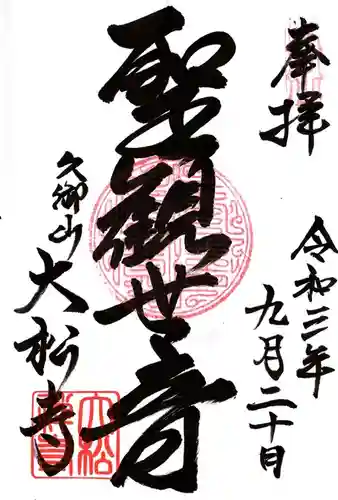 奉拝
令和三年
九月二十日
聖観世音
久御山
大松寺